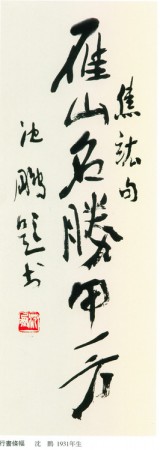 雁山名勝甲一方
焦竑句
沈鵬題書
行書條幅　沈　鵬　1931年生